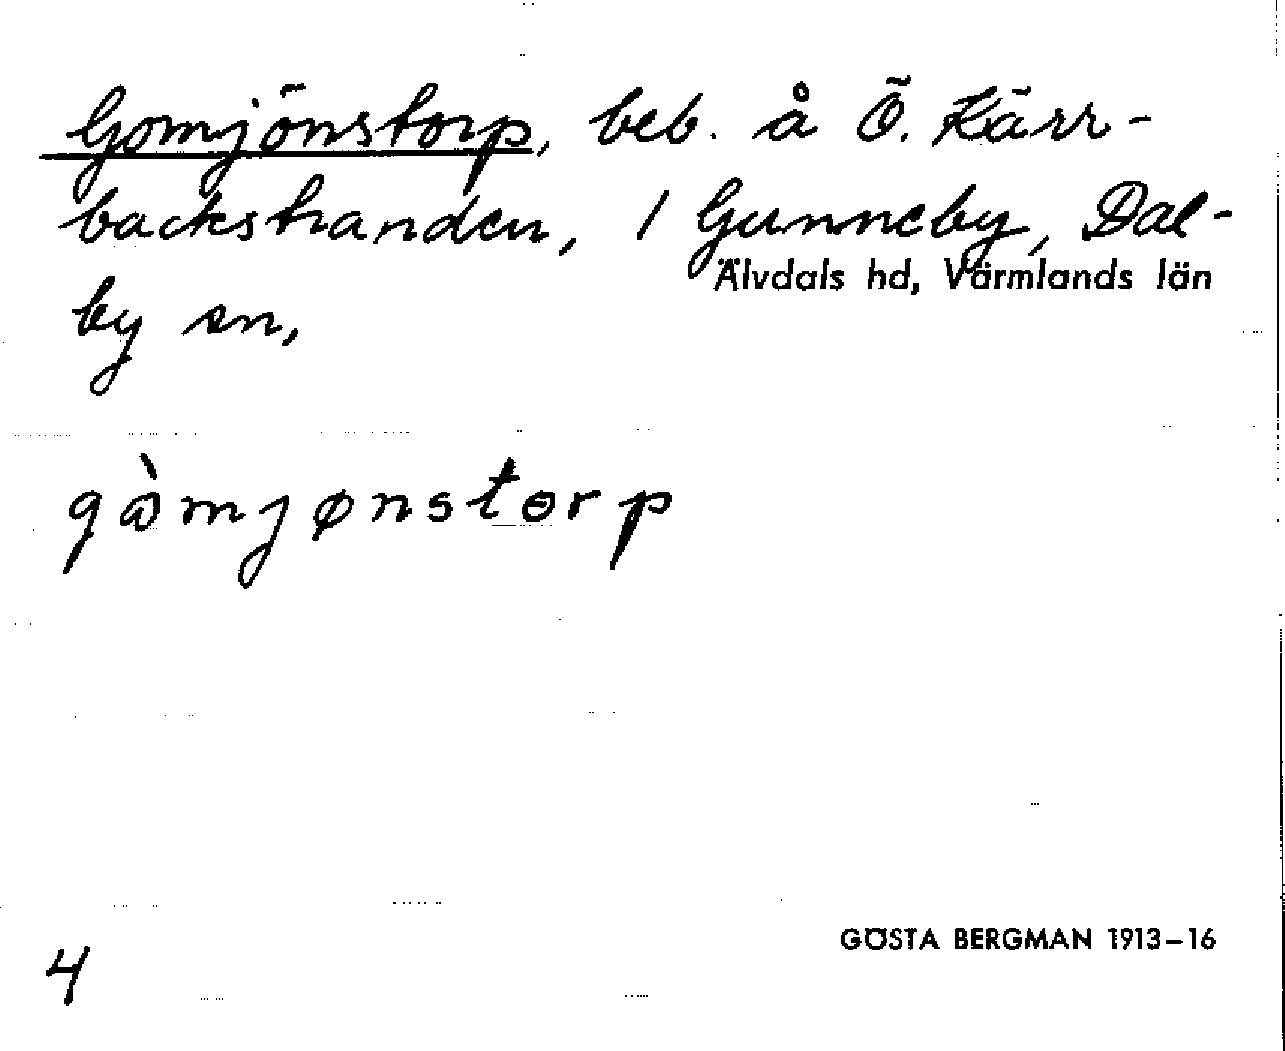 Gomjönstorp, beb. å Ö. Kärr-
backstranden, 1 Gunneby, Dal-
Älvdals hd, Värmlands län
by sn,
gòmjønstorp
GÖSTA BERGMAN 1913-16
4